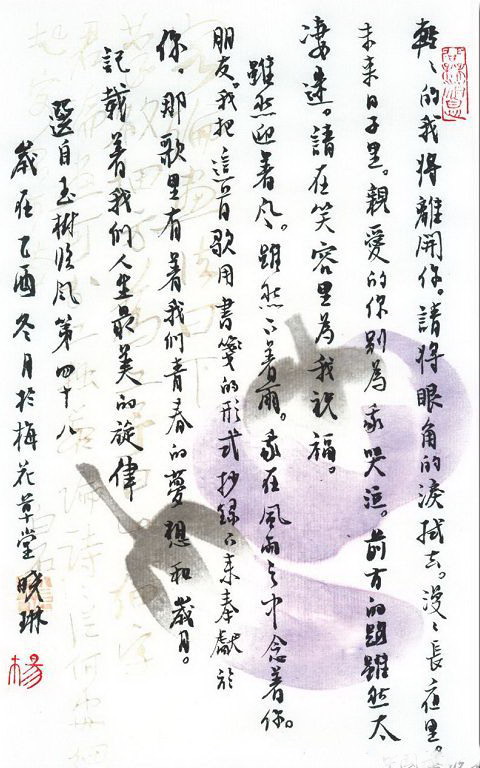 輕、的我将離開你。請将眼角的淚拭去。漫、長夜里。
未来日子里。親愛的你别為我哭泣。前方的路雖然太
凄迷。請在笑容里為我祝福。
雖然迎着风。雖然下着雨。我在風雨之中念着你。
朋友。我把這首歌用書箋的形式抄録下来奉獻於
你。那歌里有着我們青春的夢想和歲月。
記載着我們人生最美的旋律
選自玉樹临风第四十八
歲在乙酉冬月於梅花草堂 曉琳
杨